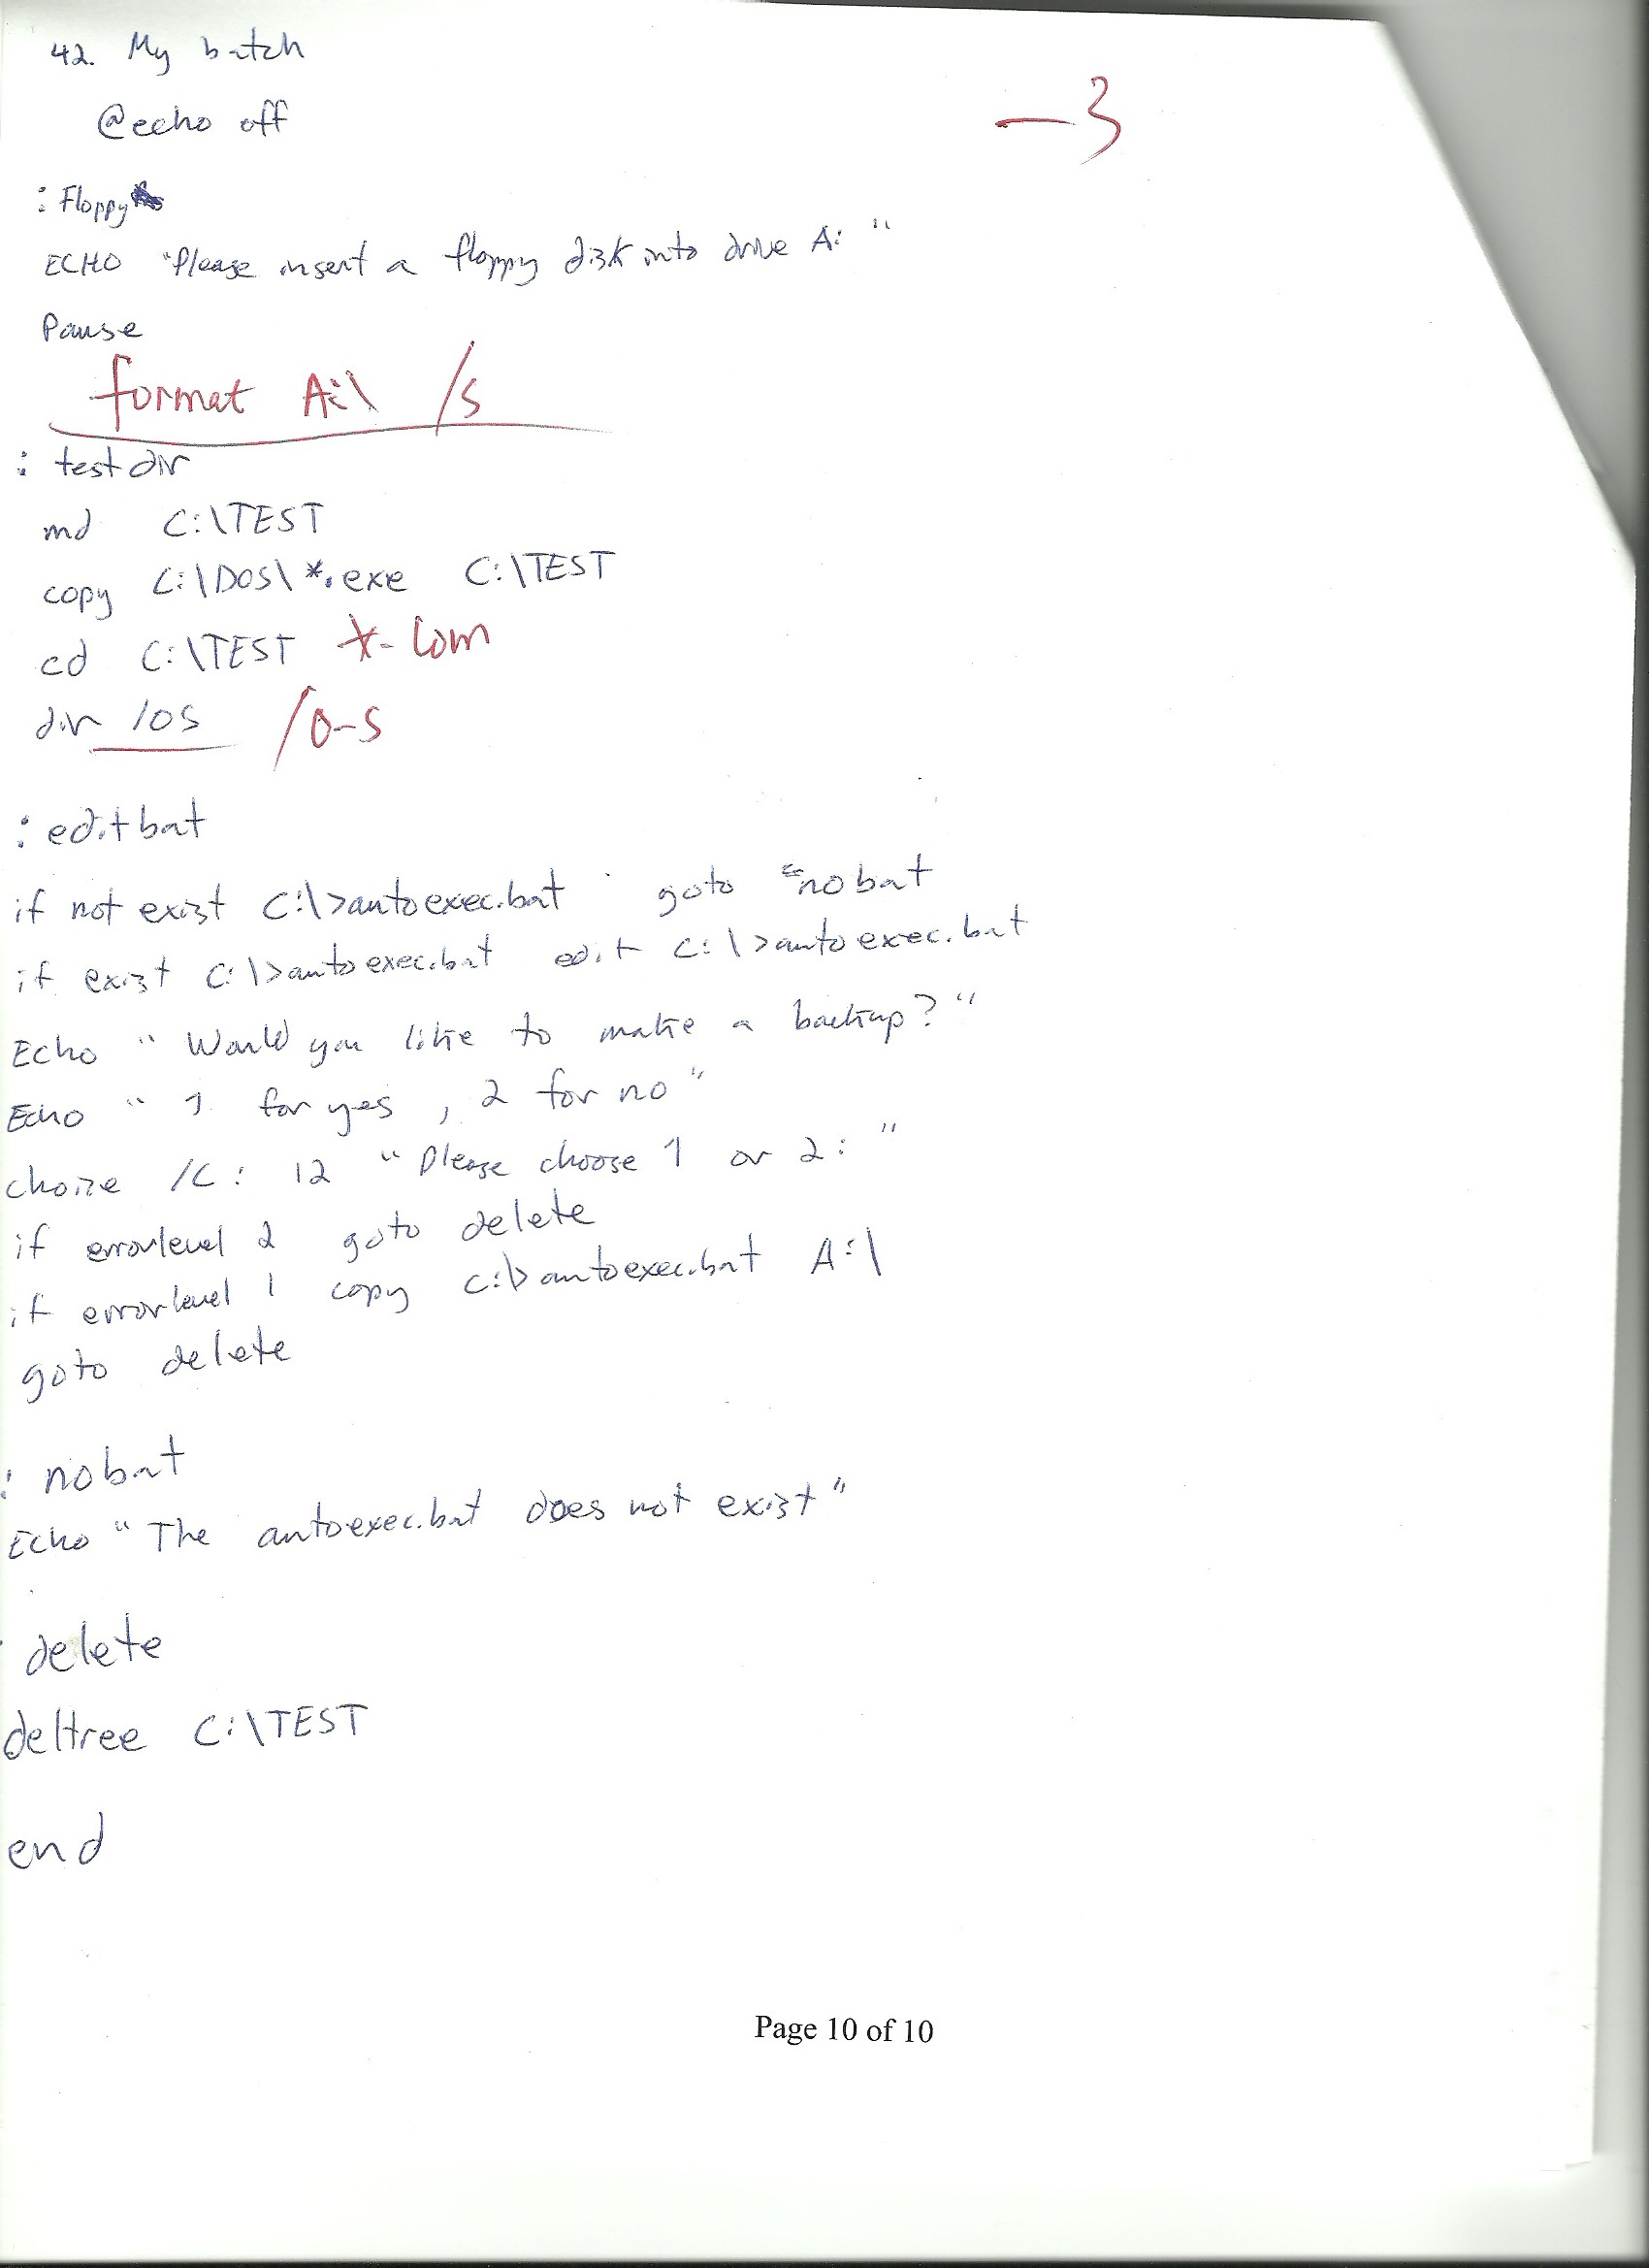 42. My batch
@echo off
-3
: Floppy
ECHO "Please insert a floppy disk into drive A: "
Pause
format A:\ /s
: testdir
md C:\TEST
copy C:\DOS\*.exe C:\TEST
cd C:\TEST *.com
dir /OS /O-S
: editbat
if not exist C:\>autoexec.bat goto nobat
if exist C:\>autoexec.bat edit C:\>autoexec.bat
Echo " Would you like to make a backup? "
Echo " 1 for yes , 2 for no "
choice /C: 12 " Please choose 1 or 2: "
if errorlevel 2 goto delete
if errorlevel 1 copy c:\>autoexec.bat A:\
goto delete
: nobat
Echo " The autoexec.bat does not exist "
: delete
deltree C:\TEST
end
Page 10 of 10